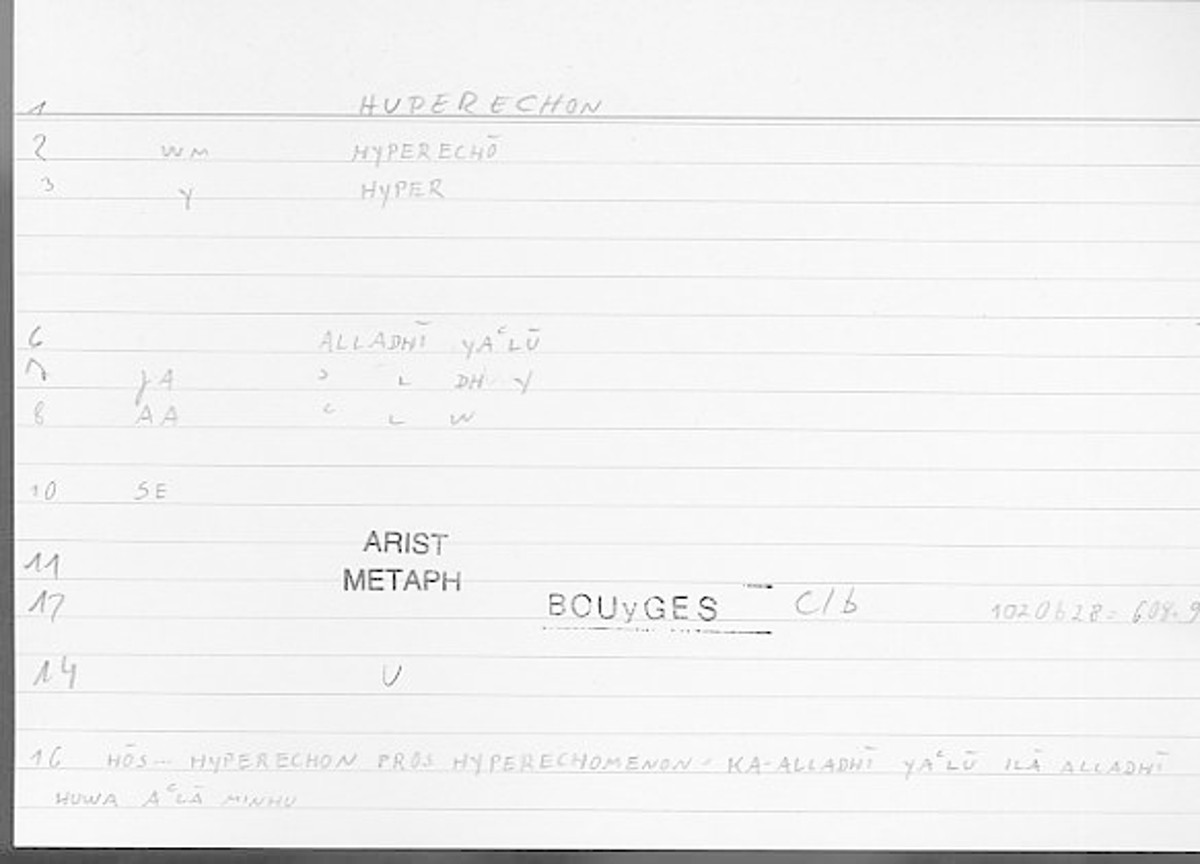 1 HUPERECHON
2 WM HYPERECHŌ
3 Y HYPER
6 ALLADHĪ YAʿLŪ
7 JA ʾ L DH Y
8 AA ʿ L W
10 SE
11 ARIST
METAPH
12 BOUyGES C/b 1020b28 = 608.9
14 U
16 HŌS... HYPERECHON PROS HYPERECHOMENON - KA-ALLADHĪ YAʿLŪ ILĀ ALLADHĪ
HUWA AʿLĀ MINHU